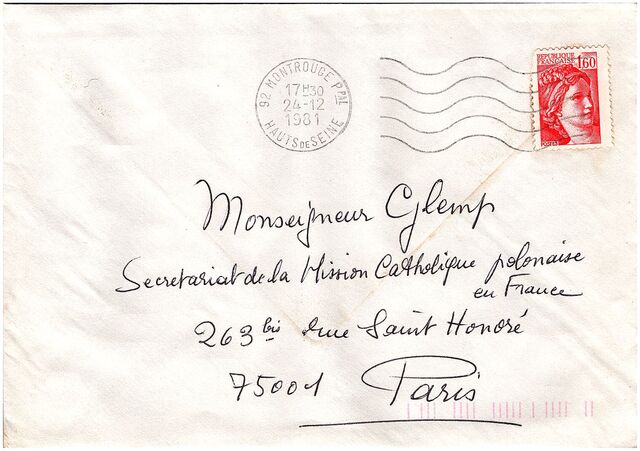 92 MONTROUGE PPAL
17H30
24-12
1981
HAUTS DE SEINE
REPUBLIQUE
FRANÇAISE
1,60
POSTES
Monseigneur Glemp
Secretariat de la Mission Catholique polonaise
en France
263 bis rue Saint Honoré
75001 Paris